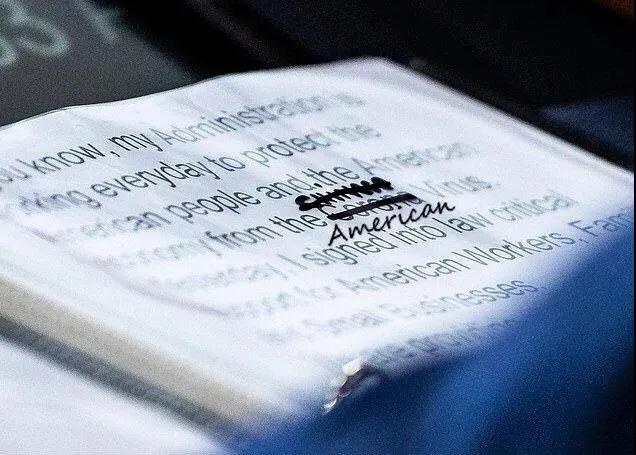 ou know, my Administration is
king everyday to protect the
erican people and the American
onomy from the Virus.
American
Yesterday, I signed into law critical
support for American Workers, Fam
Small Businesses